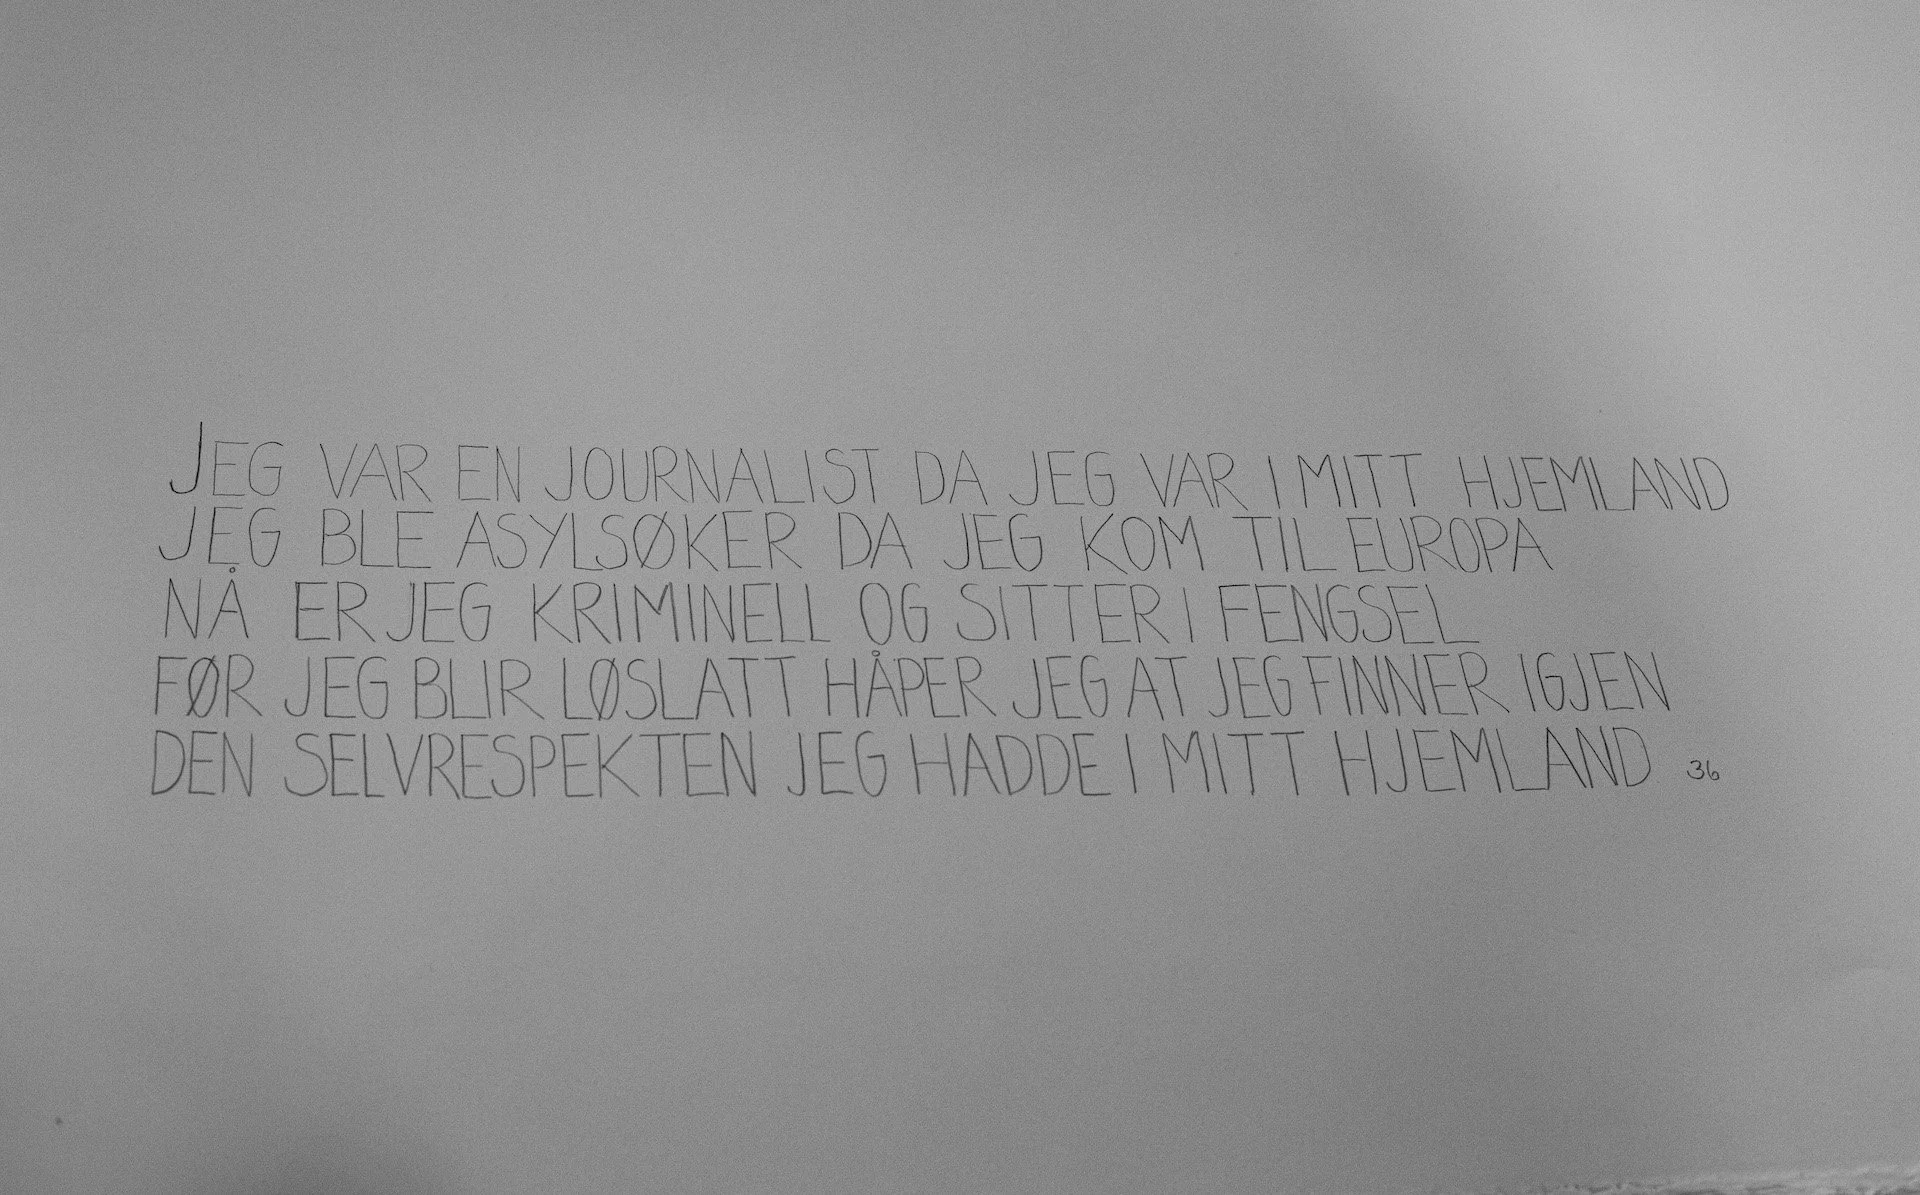 JEG VAR EN JOURNALIST DA JEG VAR I MITT HJEMLAND
JEG BLE ASYLSØKER DA JEG KOM TIL EUROPA
NÅ ER JEG KRIMINELL OG SITTER I FENGSEL
FØR JEG BLIR LØSLATT HÅPER JEG AT JEG FINNER IGJEN
DEN SELVRESPEKTEN JEG HADDE I MITT HJEMLAND 36